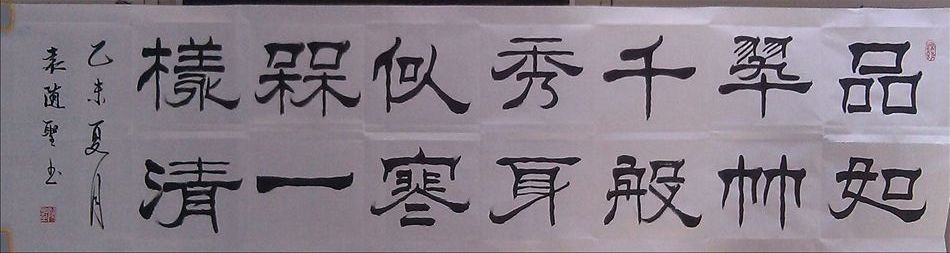 品如
翠竹
千般
秀身
似寒
槑一
樣清
乙未夏月
袁随聖书